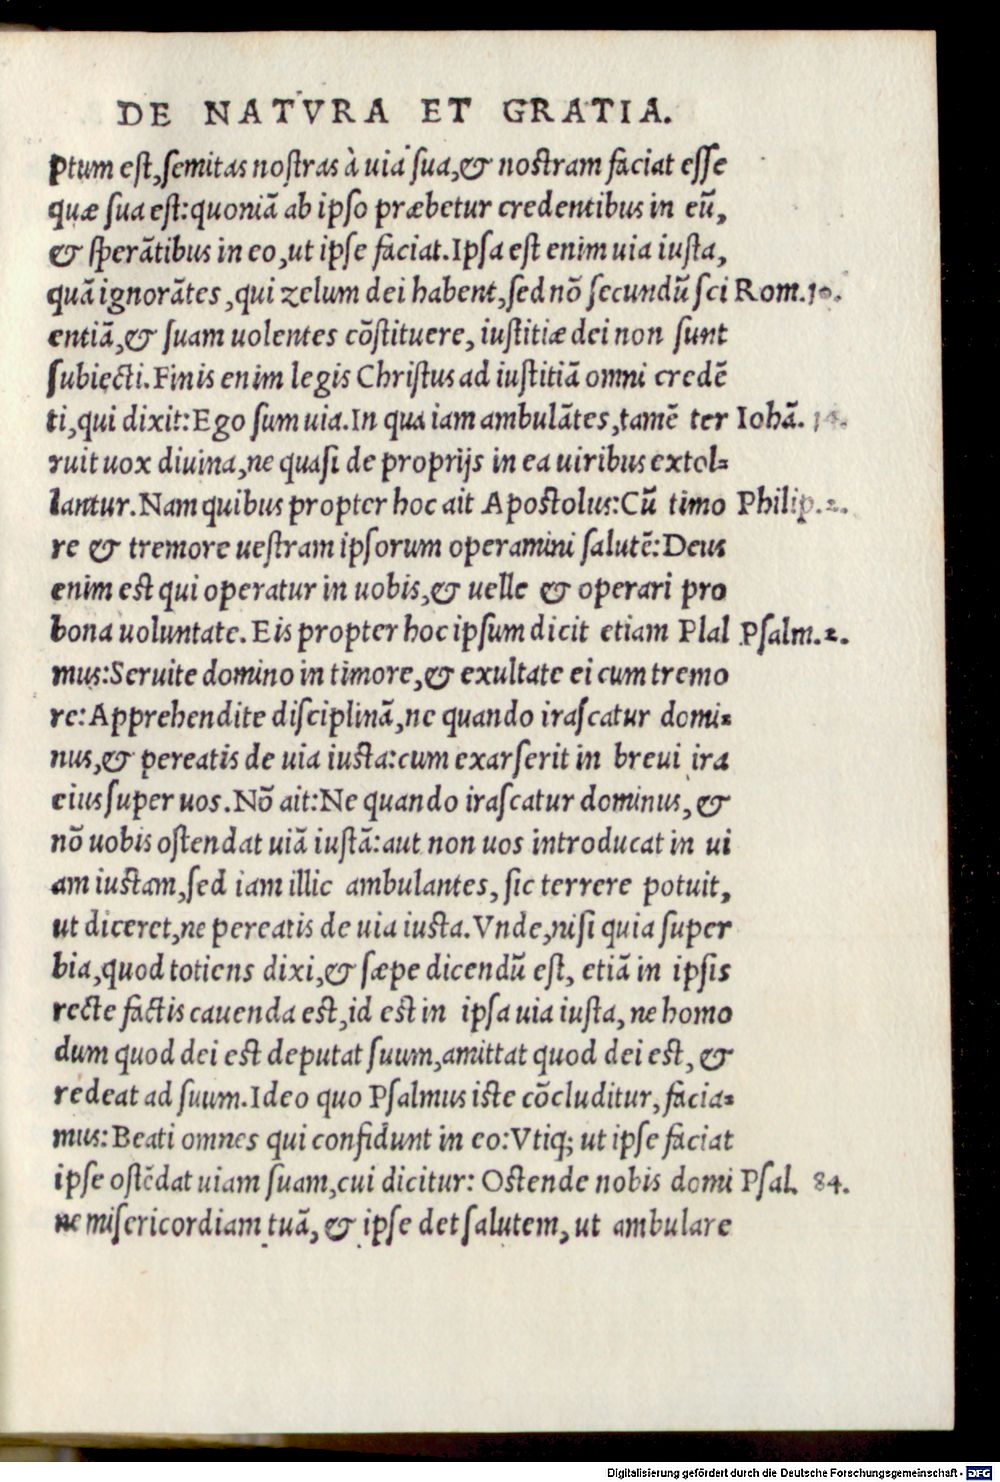 DE NATVRA ET GRATIA.
ptum est, semitas nostras à uia sua, & nostram faciat esse
quæ sua est: quoniã ab ipso præbetur credentibus in eũ,
& sperãtibus in eo, ut ipse faciat. Ipsa est enim uia iusta,
quã ignorãtes, qui zelum dei habent, sed nõ secundũ sci Rom. 10.
entiã, & suam uolentes cõstituere, iustitiæ dei non sunt
subiecti. Finis enim legis Christus ad iustitiã omni credẽ
ti, qui dixit: Ego sum uia. In qua iam ambulãtes, tamẽ ter Iohã. 14.
ruit uox diuina, ne quasi de proprijs in ea uiribus extol=
lantur. Nam quibus propter hoc ait Apostolus: Cũ timo Philip. 2.
re & tremore uestram ipsorum operamini salutẽ: Deus
enim est qui operatur in uobis, & uelle & operari pro
bona uoluntate. Eis propter hoc ipsum dicit etiam Plal Psalm. 2.
mus: Seruite domino in timore, & exultate ei cum tremo
re: Apprehendite disciplinã, ne quando irascatur domi=
nus, & pereatis de uia iusta: cum exarserit in brevi ira
eius super uos. Nõ ait: Ne quando irascatur dominus, &
nõ uobis ostendat uiã iustã: aut non uos introducat in ui
am iustam, sed iam illic ambulantes, sic terrere potuit,
ut diceret, ne pereatis de uia iusta. Vnde, nisi quia super
bia, quod totiens dixi, & sæpe dicendũ est, etiã in ipsis
recte factis cauenda est, id est in ipsa uia iusta, ne homo
dum quod dei est deputat suum, amittat quod dei est, &
redeat ad suum. Ideo quo Psalmus iste cõcluditur, facia=
mus: Beati omnes qui confidunt in eo: Vtiq; ut ipse faciat
ipse ostẽdat uiam suam, cui dicitur: Ostende nobis domi Psal. 84.
ne misericordiam tuã, & ipse det salutem, ut ambulare
Digitalisierung gefördert durch die Deutsche Forschungsgemeinschaft - DFG